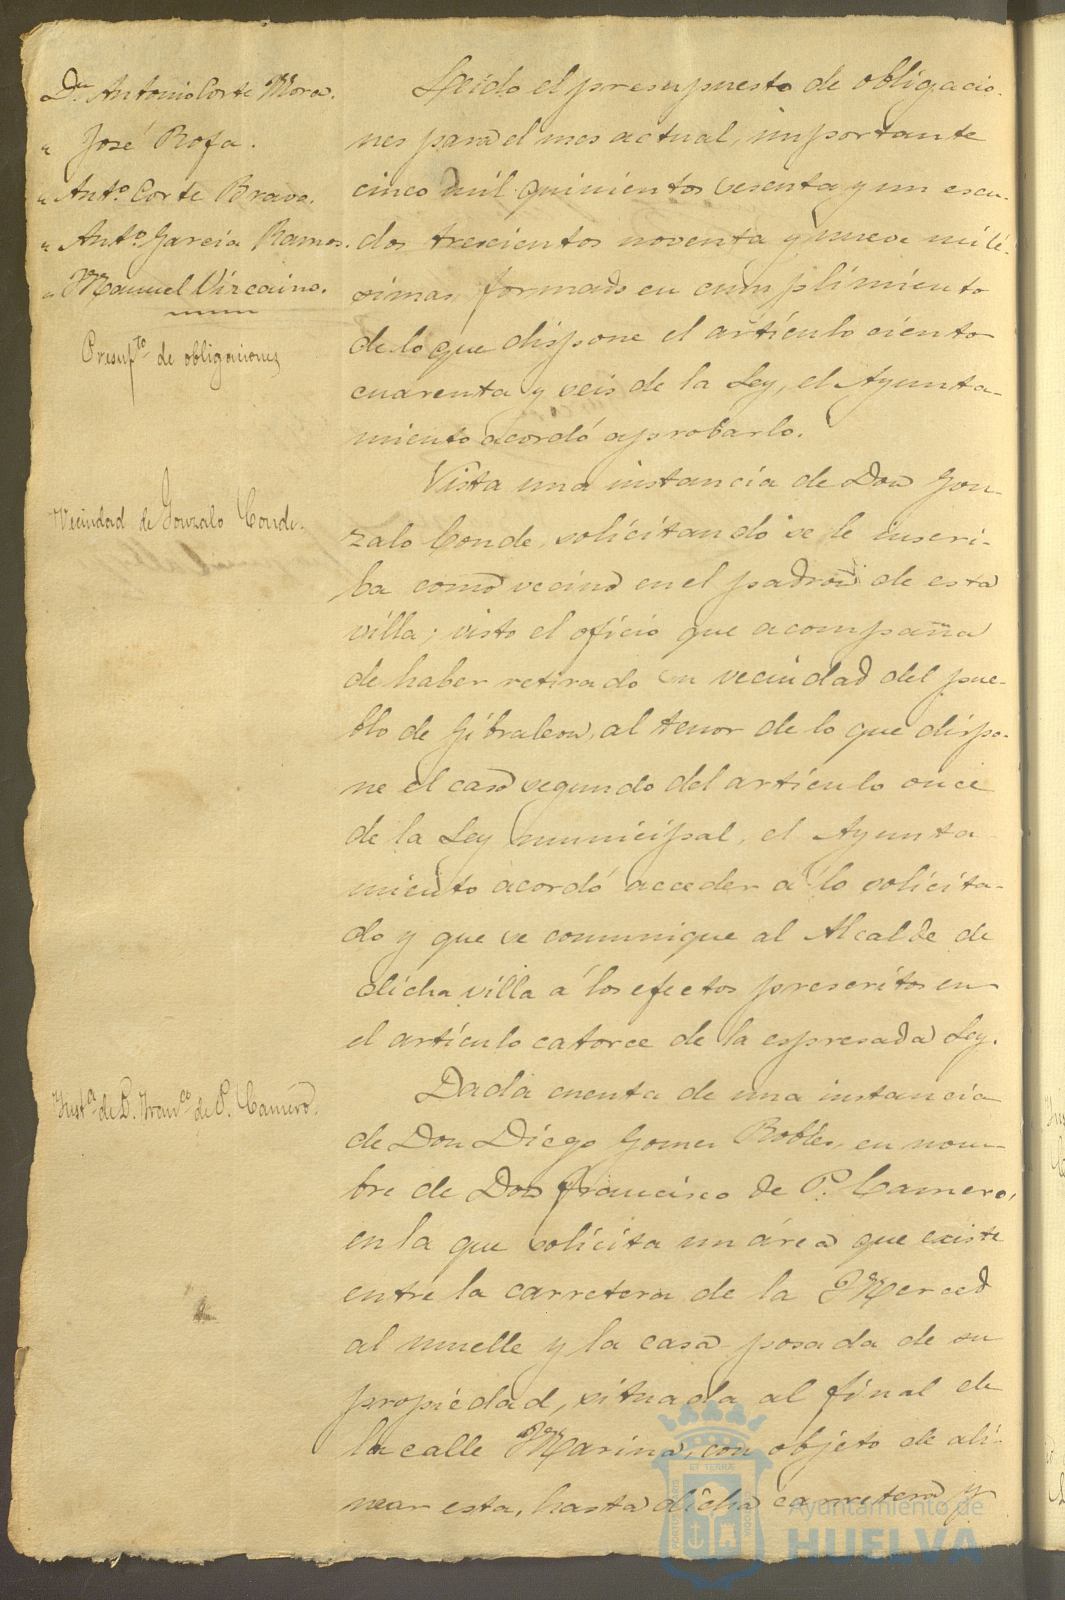 Dn Antonio Corte Mora.
" José Rofa.
" Anto. Corte Bravo.
" Anto. García Ramos.
" Manuel Vizcaino.
Presupto. de obligaciones
Leido el presupuesto de obligacio-
nes para el mes actual, importante
cinco mil quinientos sesenta y un escu-
dos trescientos noventa y nueve milé-
simas, formado en cumplimiento
de lo que dispone el artículo ciento
cuarenta y seis de la Ley, el Ayunta-
miento acordó aprobarlo.
Vecindad de Gonzalo Conde.
Vista una instancia de Don Gon-
zalo Conde, solicitando se le inscri-
ba como vecino en el padron de esta
villa; visto el oficio que acompaña
de haber retirado su vecindad del pue-
blo de Gibraleon, al tenor de lo que dispo-
ne el caso segundo del artículo once
de la Ley municipal, el Ayunta-
miento acordó acceder á lo solicita-
do y que se comunique al Alcalde de
dicha villa á los efectos prescritos en
el artículo catorce de la espresada Ley.
Insta. de D. Franco. de P. Camero.
Dada cuenta de una instancia
de Don Diego Gomez Robles, en nom-
bre de Don Francisco de P. Camero,
en la que solicita un área que existe
entre la carretera de la Merced
al muelle y la casa posada de su
propiedad, situada al final de
la calle Marina, con objeto de ali-
near esta, hasta dicha carretera y
Ayuntamiento de
HUELVA